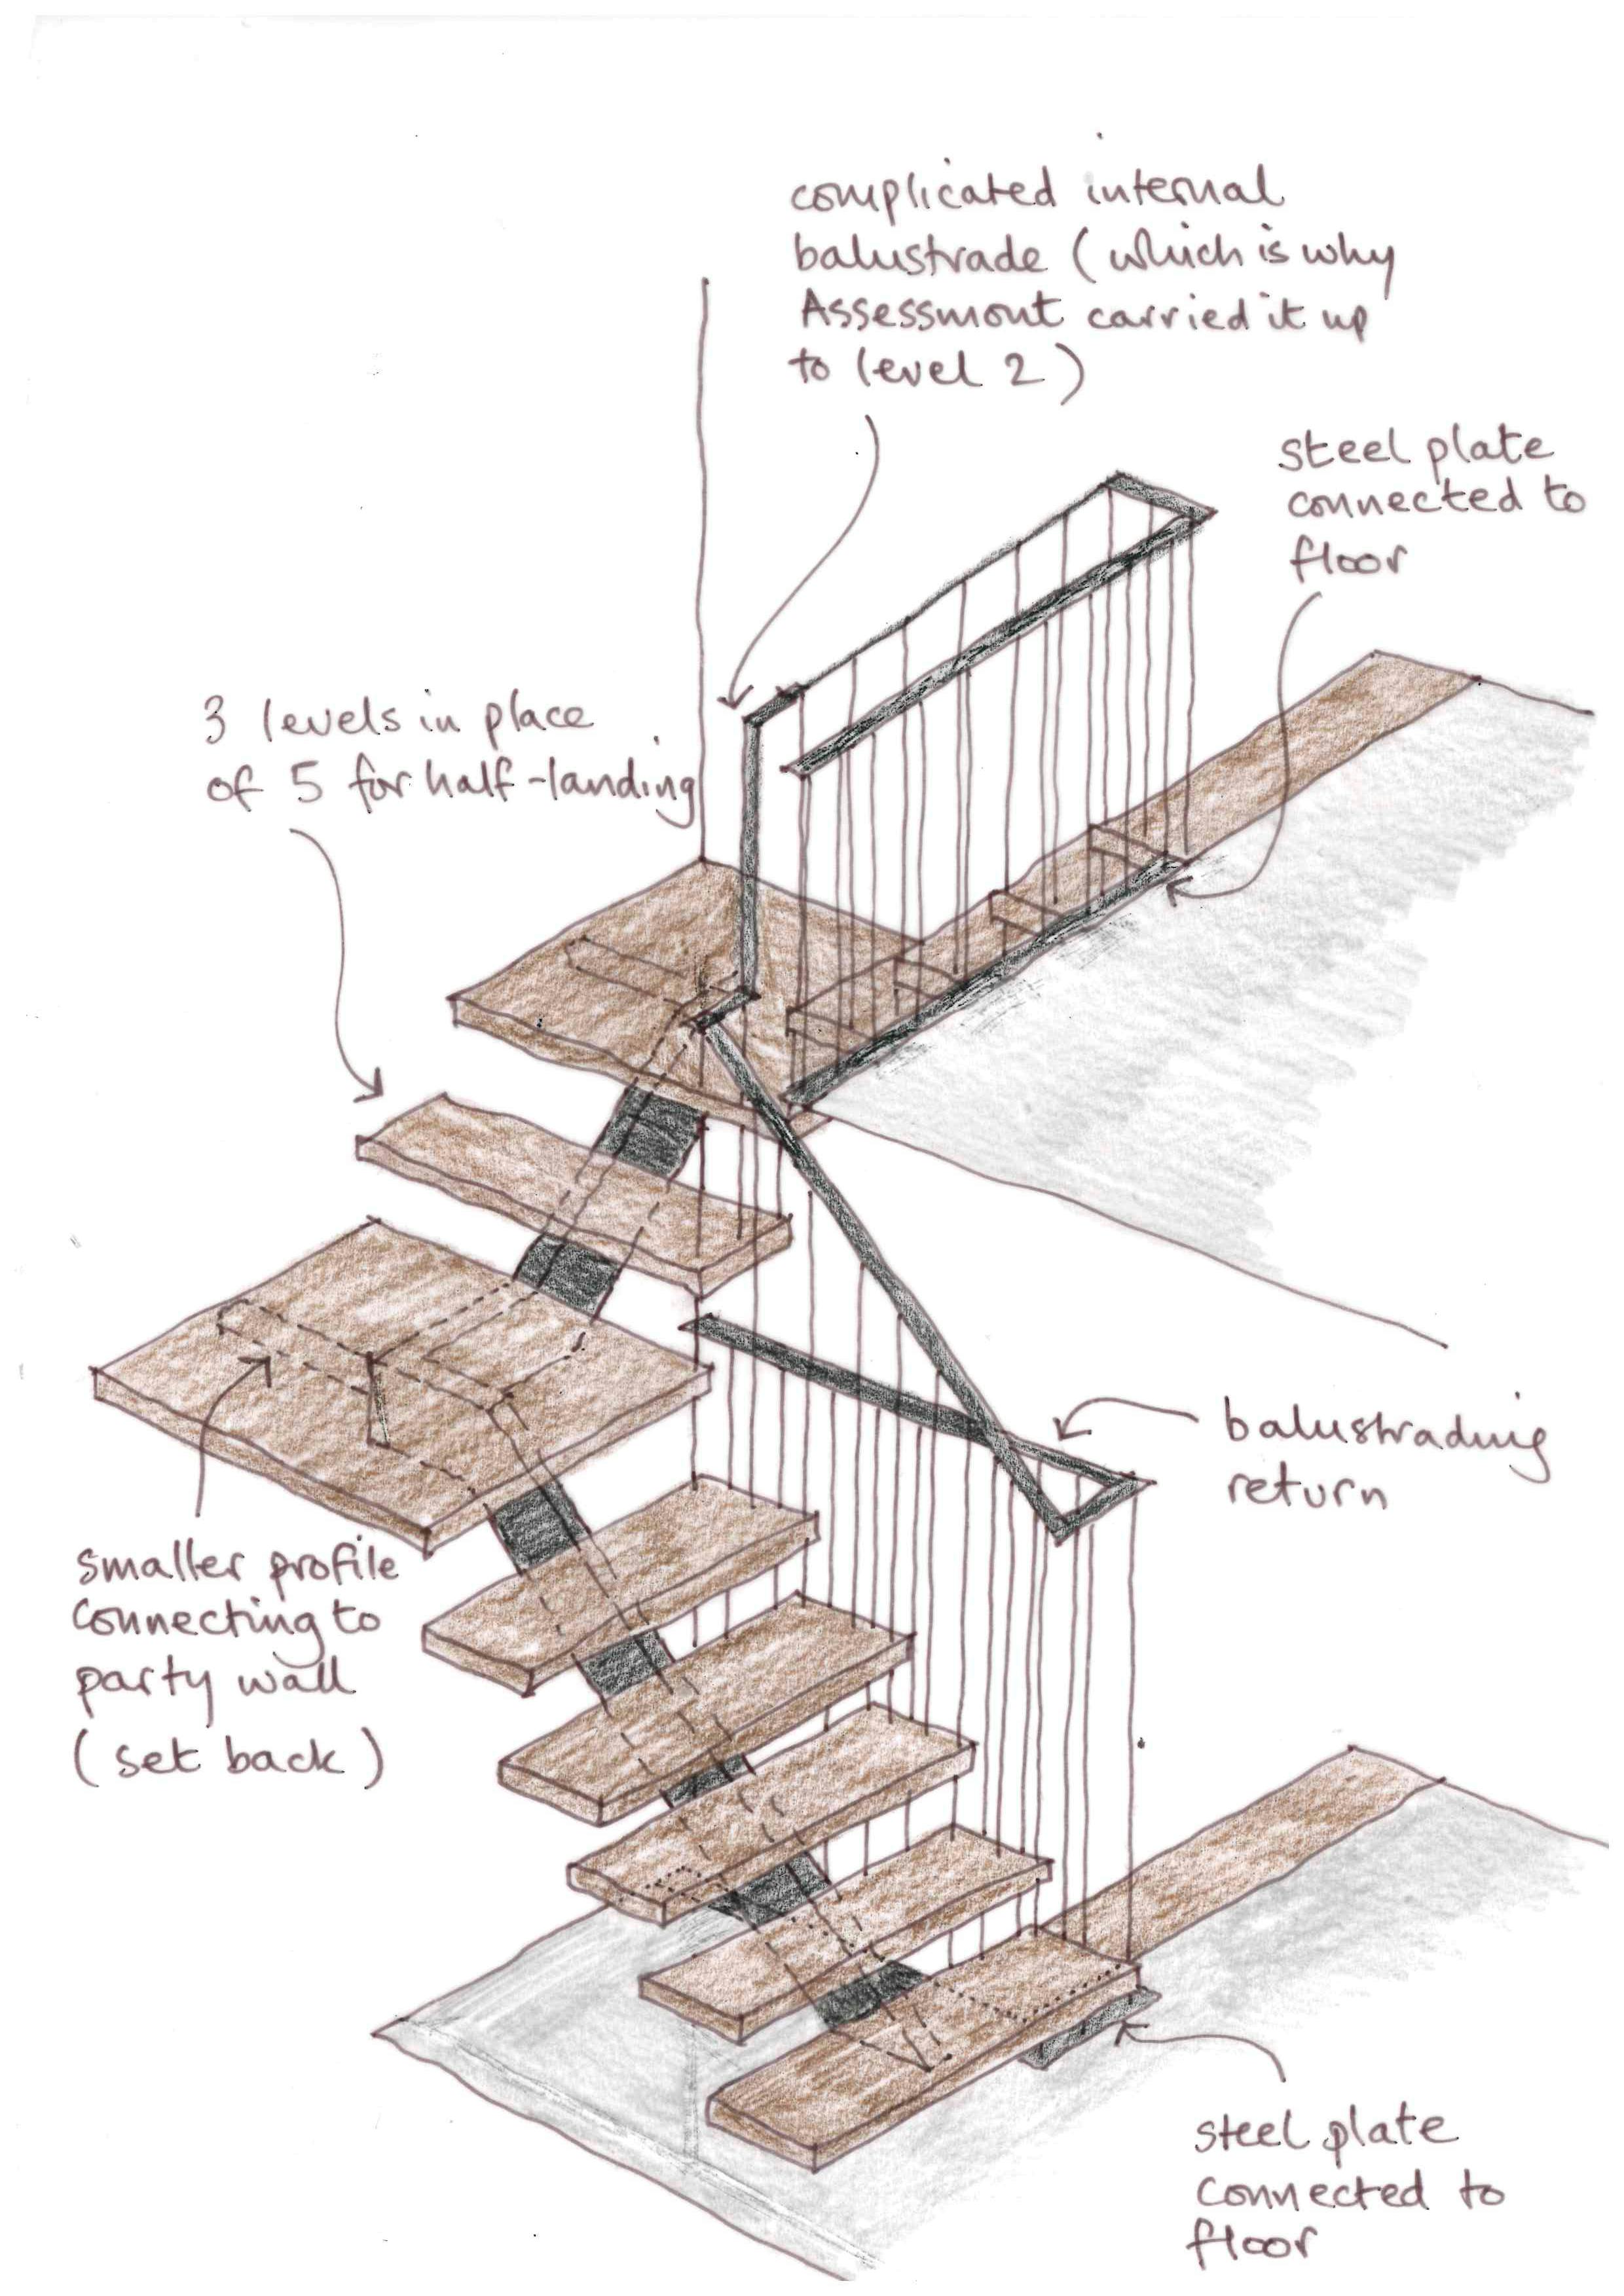 complicated internal
balustrade (which is why
Assessmont carried it up
to level 2)
steel plate
connected to
floor
3 levels in place
of 5 for half-landing
balustrading
return
smaller profile
connecting to
party wall
(set back)
steel plate
connected to
floor